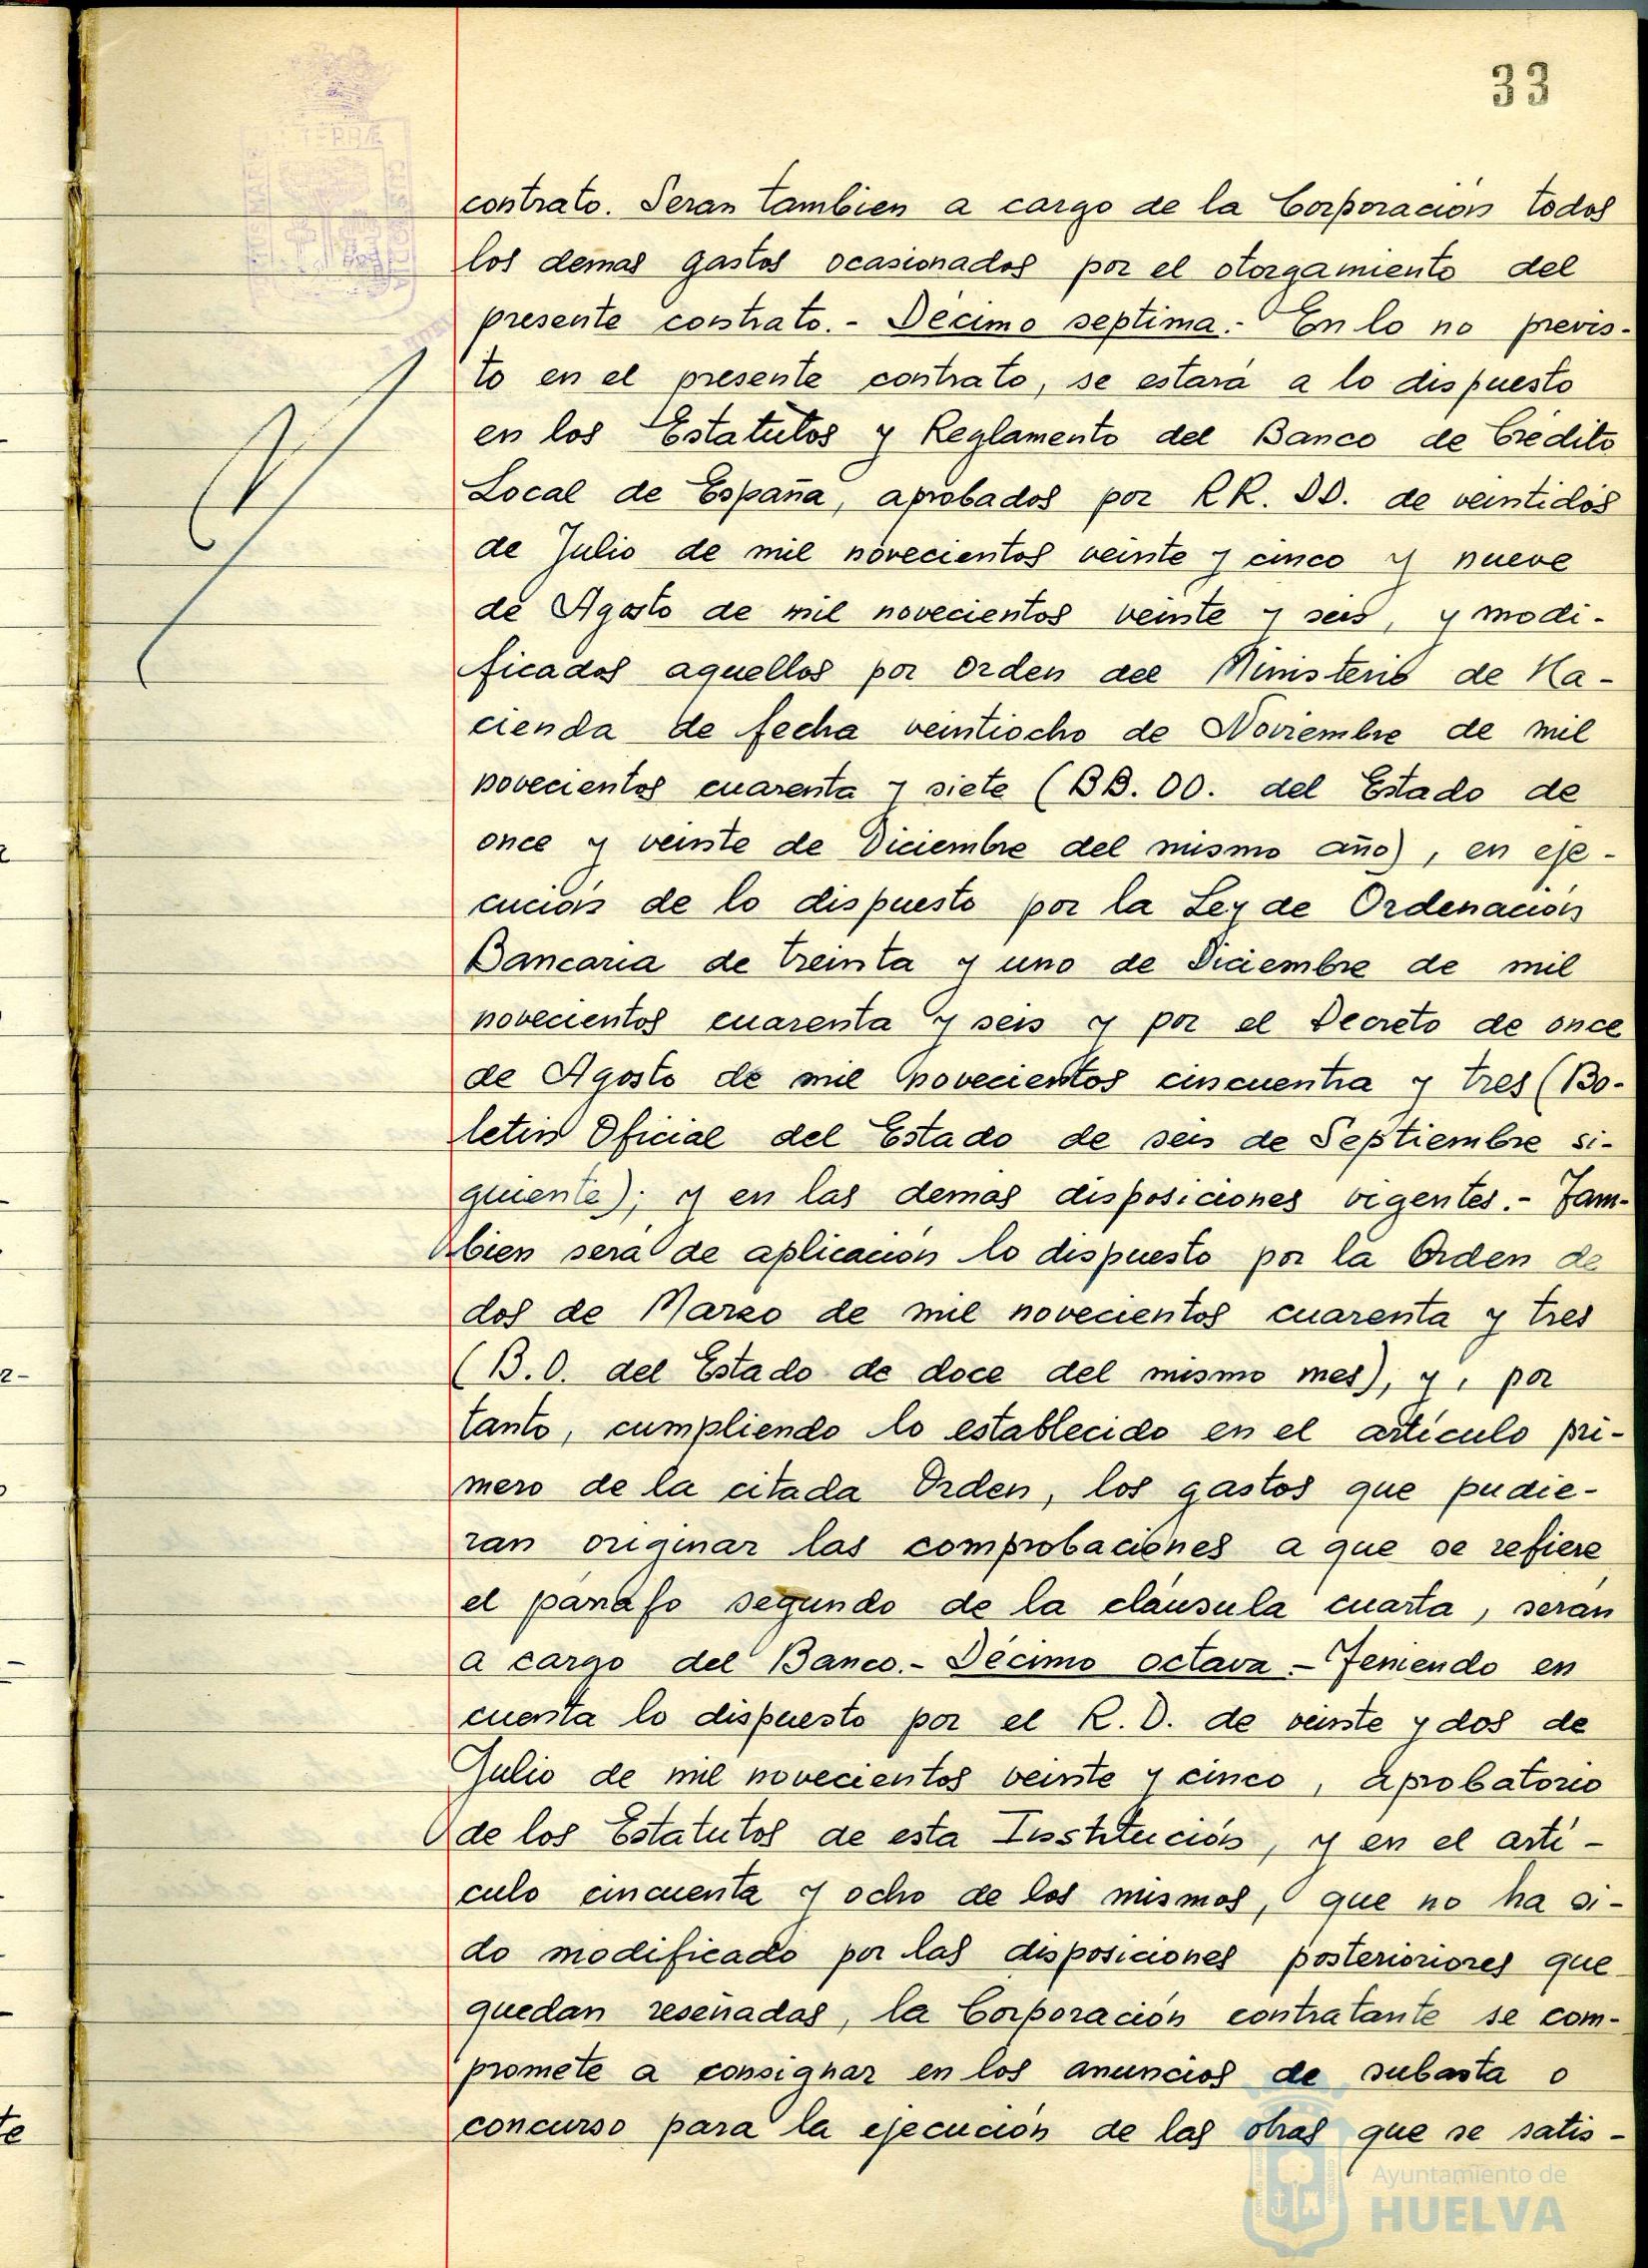 33
contrato. Seran tambien a cargo de la Corporación todos
los demas gastos ocasionados por el otorgamiento del
presente contrato.- Décimo septima.- En lo no previs-
to en el presente contrato, se estará a lo dispuesto
en los Estatutos y Reglamento del Banco de Crédito
Local de España, aprobados por RR. DD. de veintidós
de Julio de mil novecientos veinte y cinco y nueve
de Agosto de mil novecientos veinte y seis, y modi-
ficados aquellos por orden del Ministerio de Ha-
cienda de fecha veintiocho de Noviembre de mil
novecientos cuarenta y siete (BB. OO. del Estado de
once y veinte de Diciembre del mismo año), en eje-
cución de lo dispuesto por la Ley de Ordenación
Bancaria de treinta y uno de Diciembre de mil
novecientos cuarenta y seis y por el Decreto de once
de Agosto de mil novecientos cincuentra y tres (Bo-
letin Oficial del Estado de seis de Septiembre si-
guiente); y en las demas disposiciones vigentes.- Tam-
bien será de aplicación lo dispuesto por la Orden de
dos de Marzo de mil novecientos cuarenta y tres
(B.O. del Estado de doce del mismo mes), y, por
tanto, cumpliendo lo establecido en el artículo pri-
mero de la citada Orden, los gastos que pudie-
ran originar las comprobaciones a que se refiere
el párrafo segundo de la cláusula cuarta, serán
a cargo del Banco.- Décimo octava.- Teniendo en
cuenta lo dispuesto por el R. D. de veinte y dos de
Julio de mil novecientos veinte y cinco, aprobatorio
de los Estatutos de esta Institución, y en el artí-
culo cincuenta y ocho de los mismos, que no ha si-
do modificado por las disposiciones posterioriores que
quedan reseñadas, la Corporación contratante se com-
promete a consignar en los anuncios de subasta o
concurso para la ejecución de las obras que se satis-
Ayuntamiento de
HUELVA